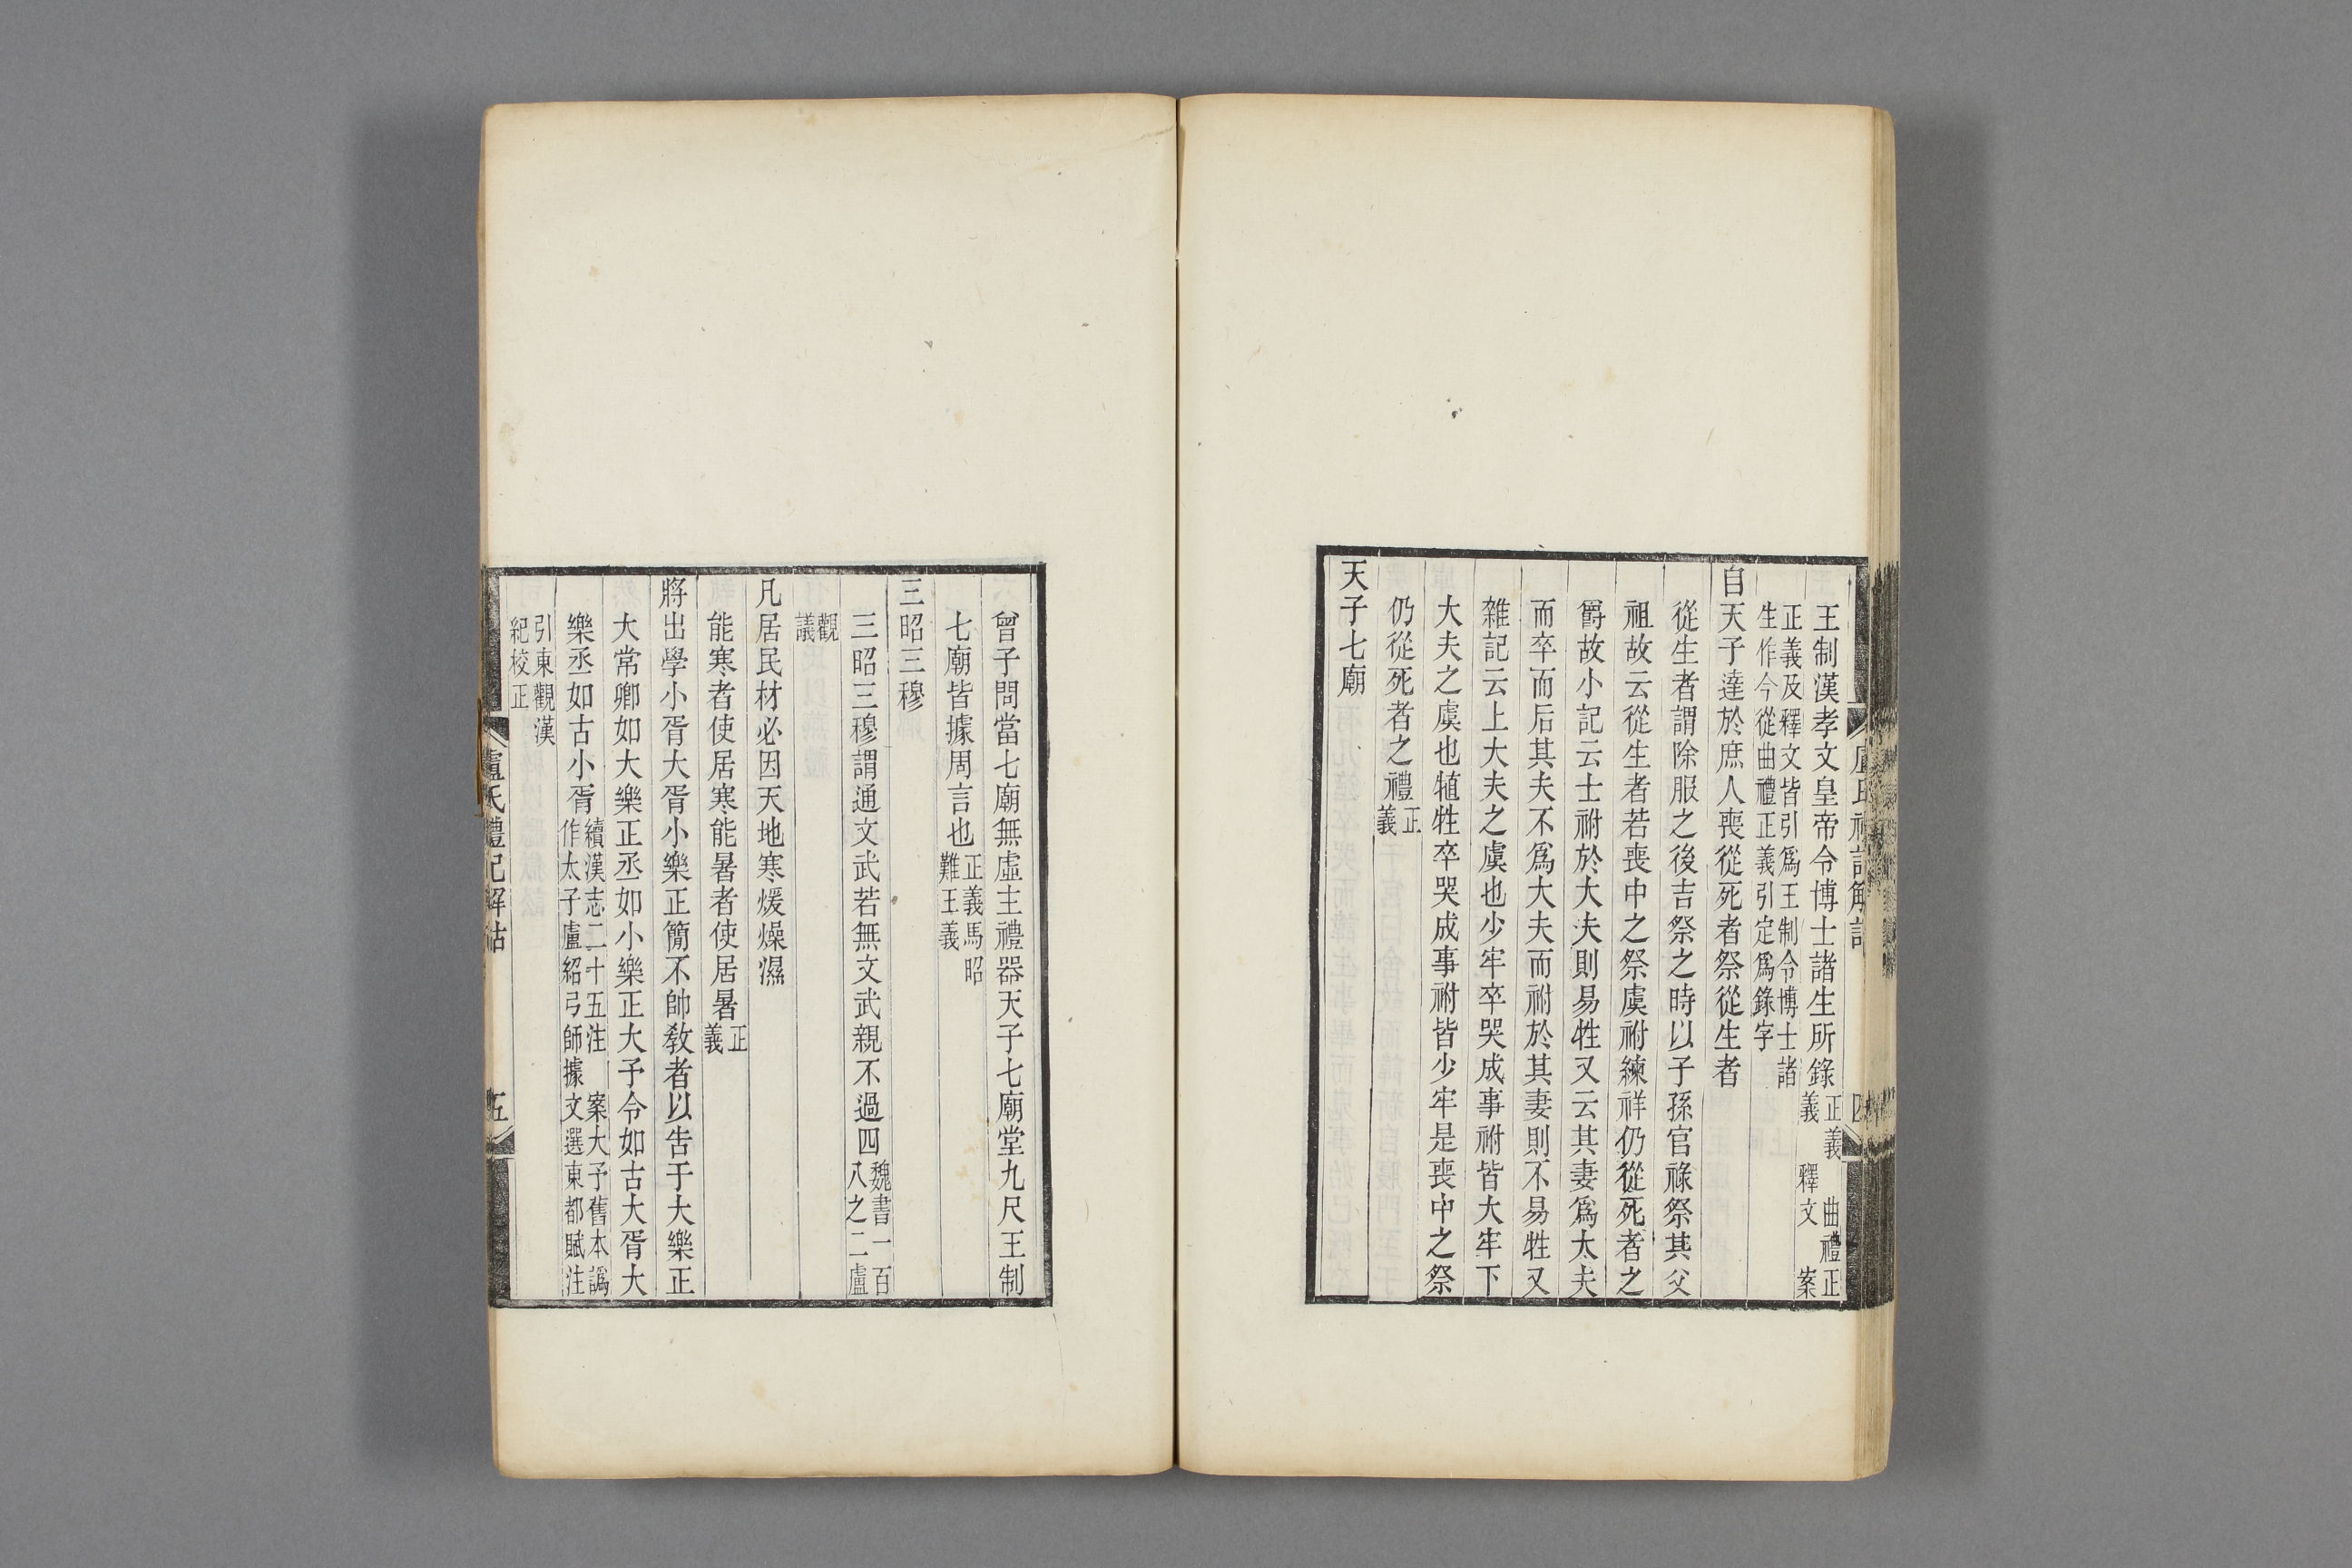 王制漢孝文皇帝令博士諸生所錄正義 曲禮正義 釋文 案
正義及釋文皆引爲王制令博士諸
生作今從曲禮正義引定爲錄字
自天子達於庶人喪從死者祭從生者
從生者謂除服之後吉祭之時以子孫官祿祭其父
祖故云從生者若喪中之祭虞祔練祥仍從死者之
爵故小記云士祔於大夫則易牲又云其妻爲大夫
而卒而后其夫不爲大夫而祔於其妻則不易牲又
雜記云上大夫之虞也少牢卒哭成事祔皆大牢下
大夫之虞也犆牲卒哭成事祔皆少牢是喪中之祭
仍從死者之禮正義
天子七廟
曾子問當七廟無虛主禮器天子七廟堂九尺王制
七廟皆據周言也正義馬昭難王義
三昭三穆
三昭三穆謂通文武若無文武親不過四魏書一百八之二盧
觀議
凡居民材必因天地寒煖燥濕
能寒者使居寒能暑者使居暑正義
將出學小胥大胥小樂正簡不帥敎者以告于大樂正
大常卿如大樂正丞如小樂正大予令如古大胥大
樂丞如古小胥續漢志二十五注 案大予舊本譌作太子盧紹弓師據文選東都賦注
引東觀漢紀校正
盧氏禮記解詁
五